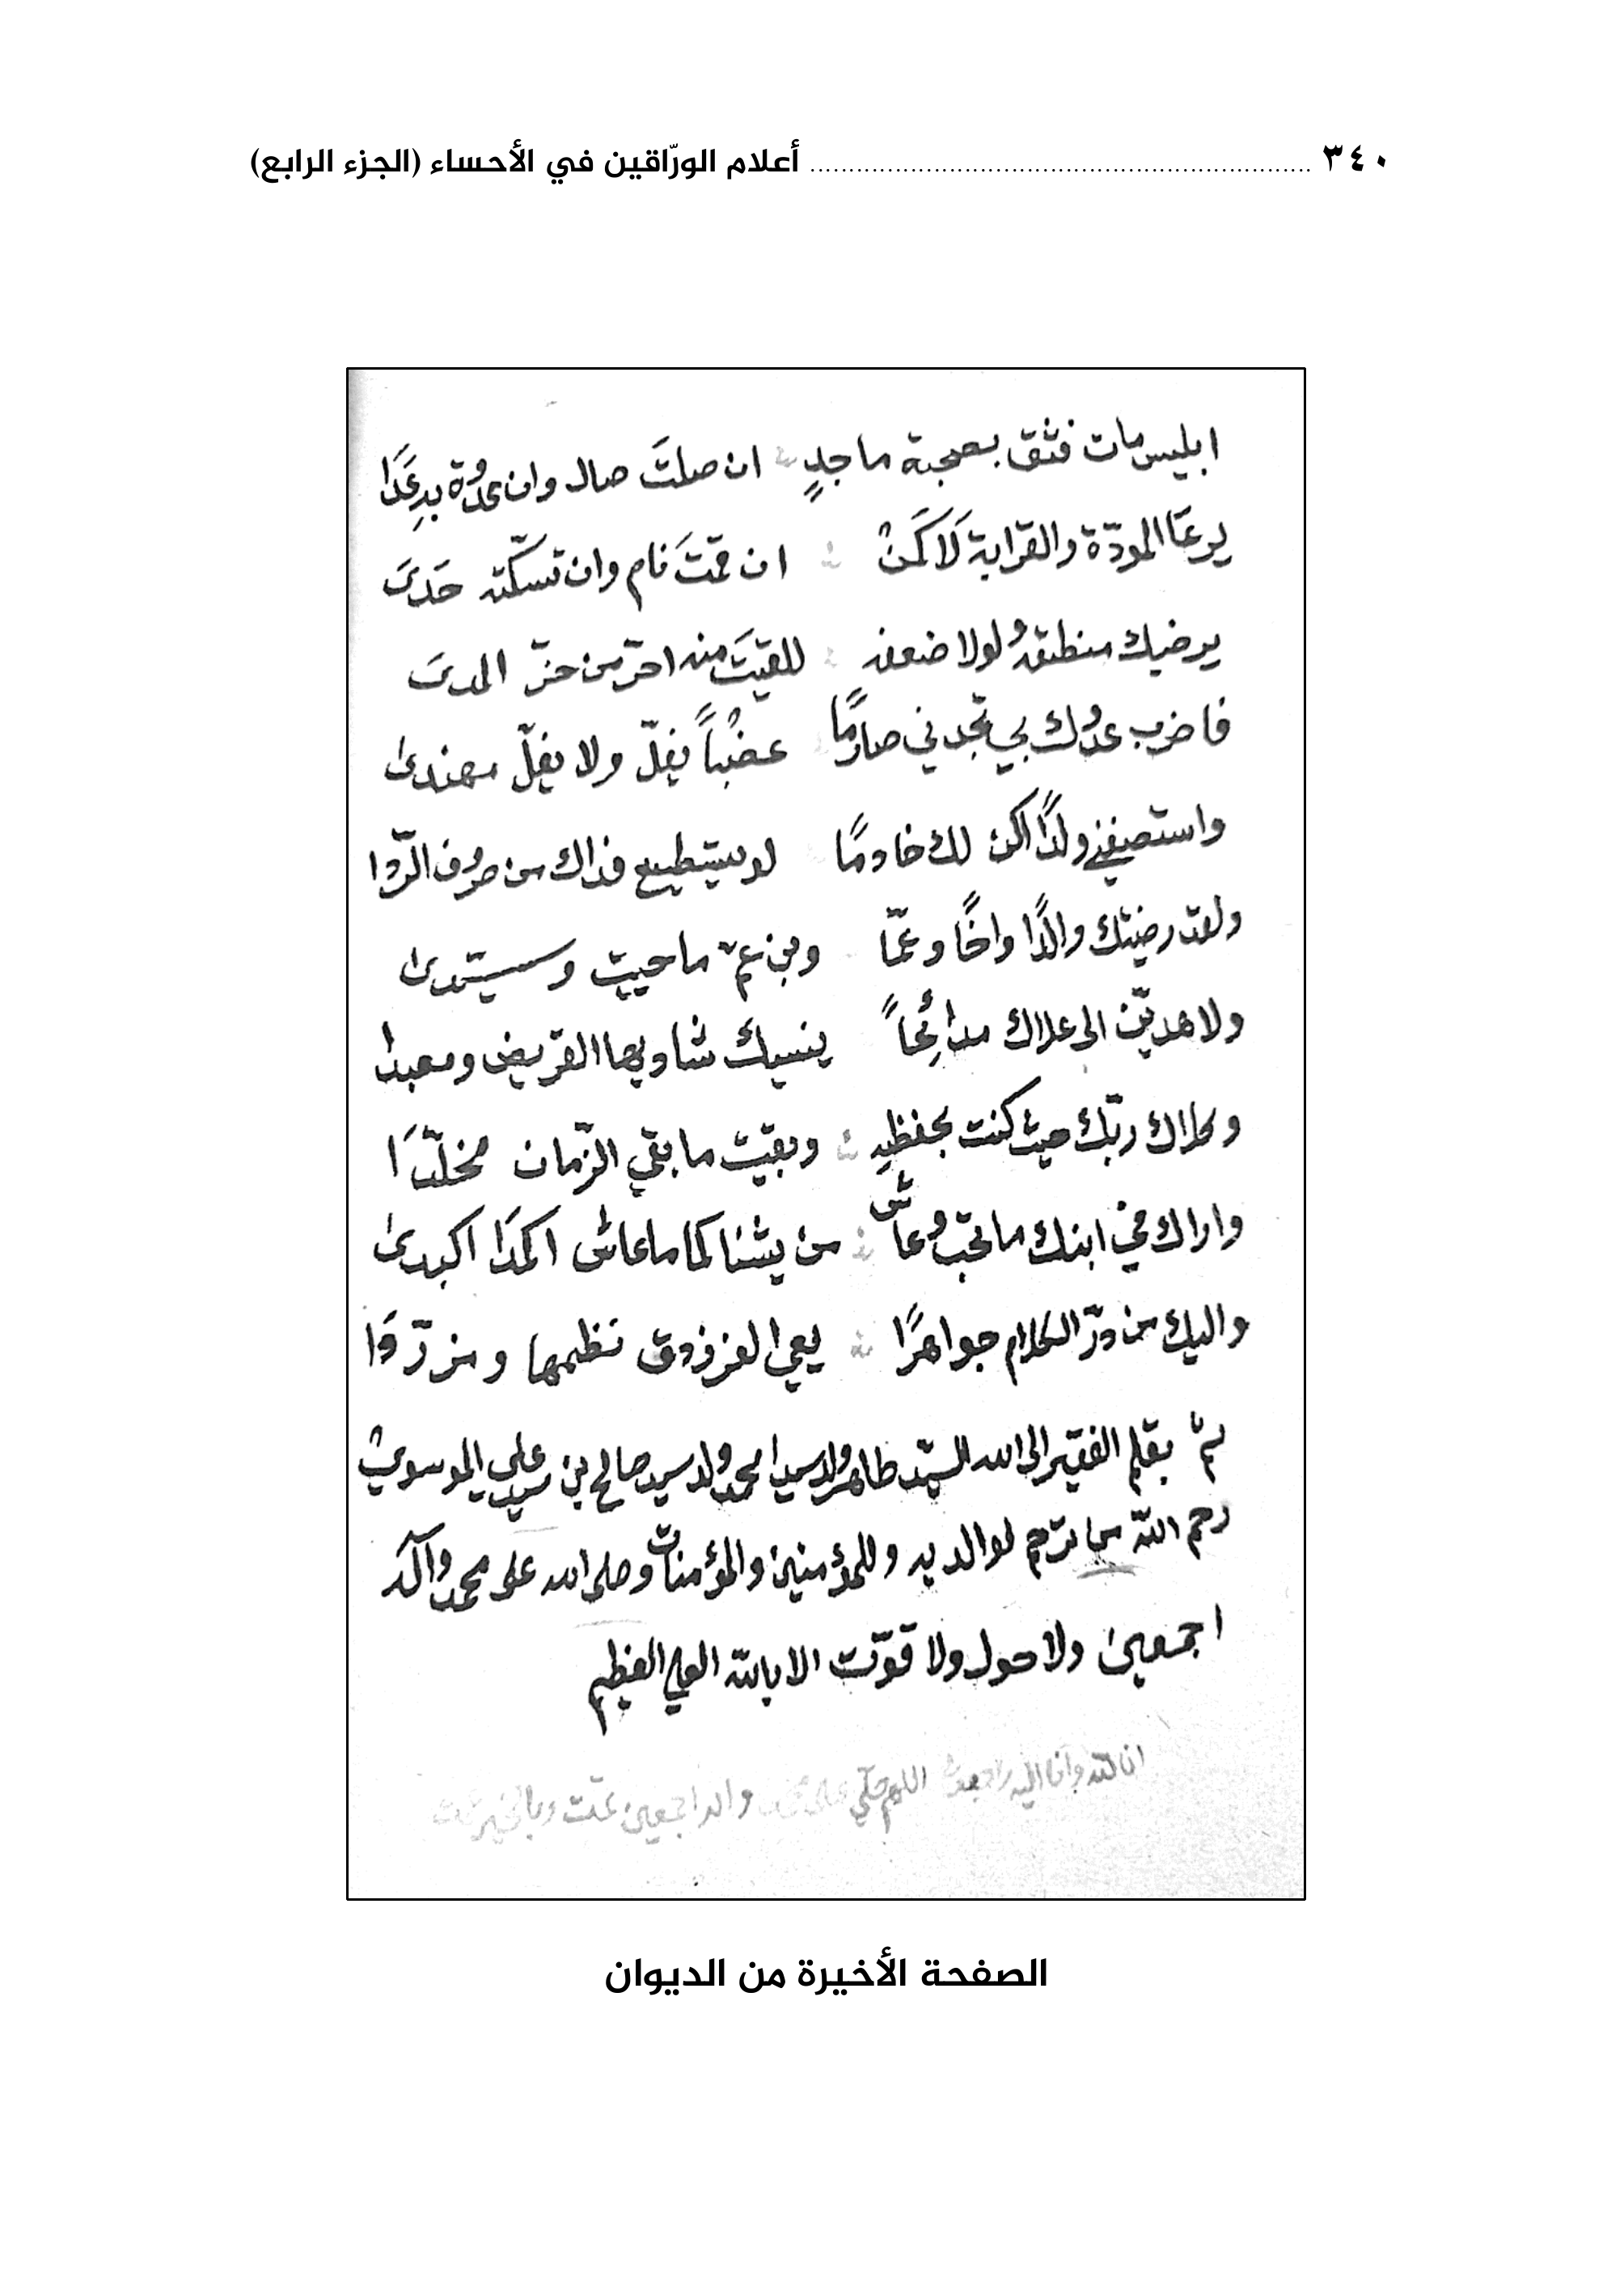 ٣٤٠ ........ أعلام الورّاقين في الأحساء (الجزء الرابع)
ابليس مات فثق بصحبة ماجدٍ ان صلتَ صال وان عدُوة بدِعَدَا
يرعَا المودّة والقرابة لَا كَمَنْ ان قمتَ نام وان تسكّته حَدَىَ
يرضيك منطقهُ ولولا ضعفه للقيتَ منه احرّ من حزّ المدىَ
فاضرب عدُوك بي تجدني صارمًا عضْباً يفلّ ولا يفلّ مهندىٰ
واستصفني ولدًا اكن لك خادمًا لو يستطيع فداك من صروف الرّدا
ولقد رضيتك والدًا واخًا وعمّا وبن عمٍ ما حييت وسيّدىٰ
ولاهديّن الى علاك مدائِحاً ينسيك شاديها القريض ومعبدا
وكلاك ربّك حيث كنت بحفظهِ وبقيت ما بقي الزّمان مخلّدَا
واراك في ابنك ما تحبُ وعاش من يشناكما ما عاش اكمدَا اكبدىٰ
واليك من درّ الكلام جواهرًا يعي الفرزدق نظمها ومزرّدَا
تمْ بقلم الفقير الى الله السيّد طاهر ولد سيد محمد ولد سيد صالح بن سيد علي الموسوي
رحم الله من ترحم لوالديه وللمؤمنين والمؤمنات وصلى الله على محمد وآله
اجمعين ولا حول ولا قوّت الا بالله العلي العظيم
انا لله وانا اليه راجعون اللهم صلّي على واله اجمعين تمّت وبالخير
الصفحة الأخيرة من الديوان